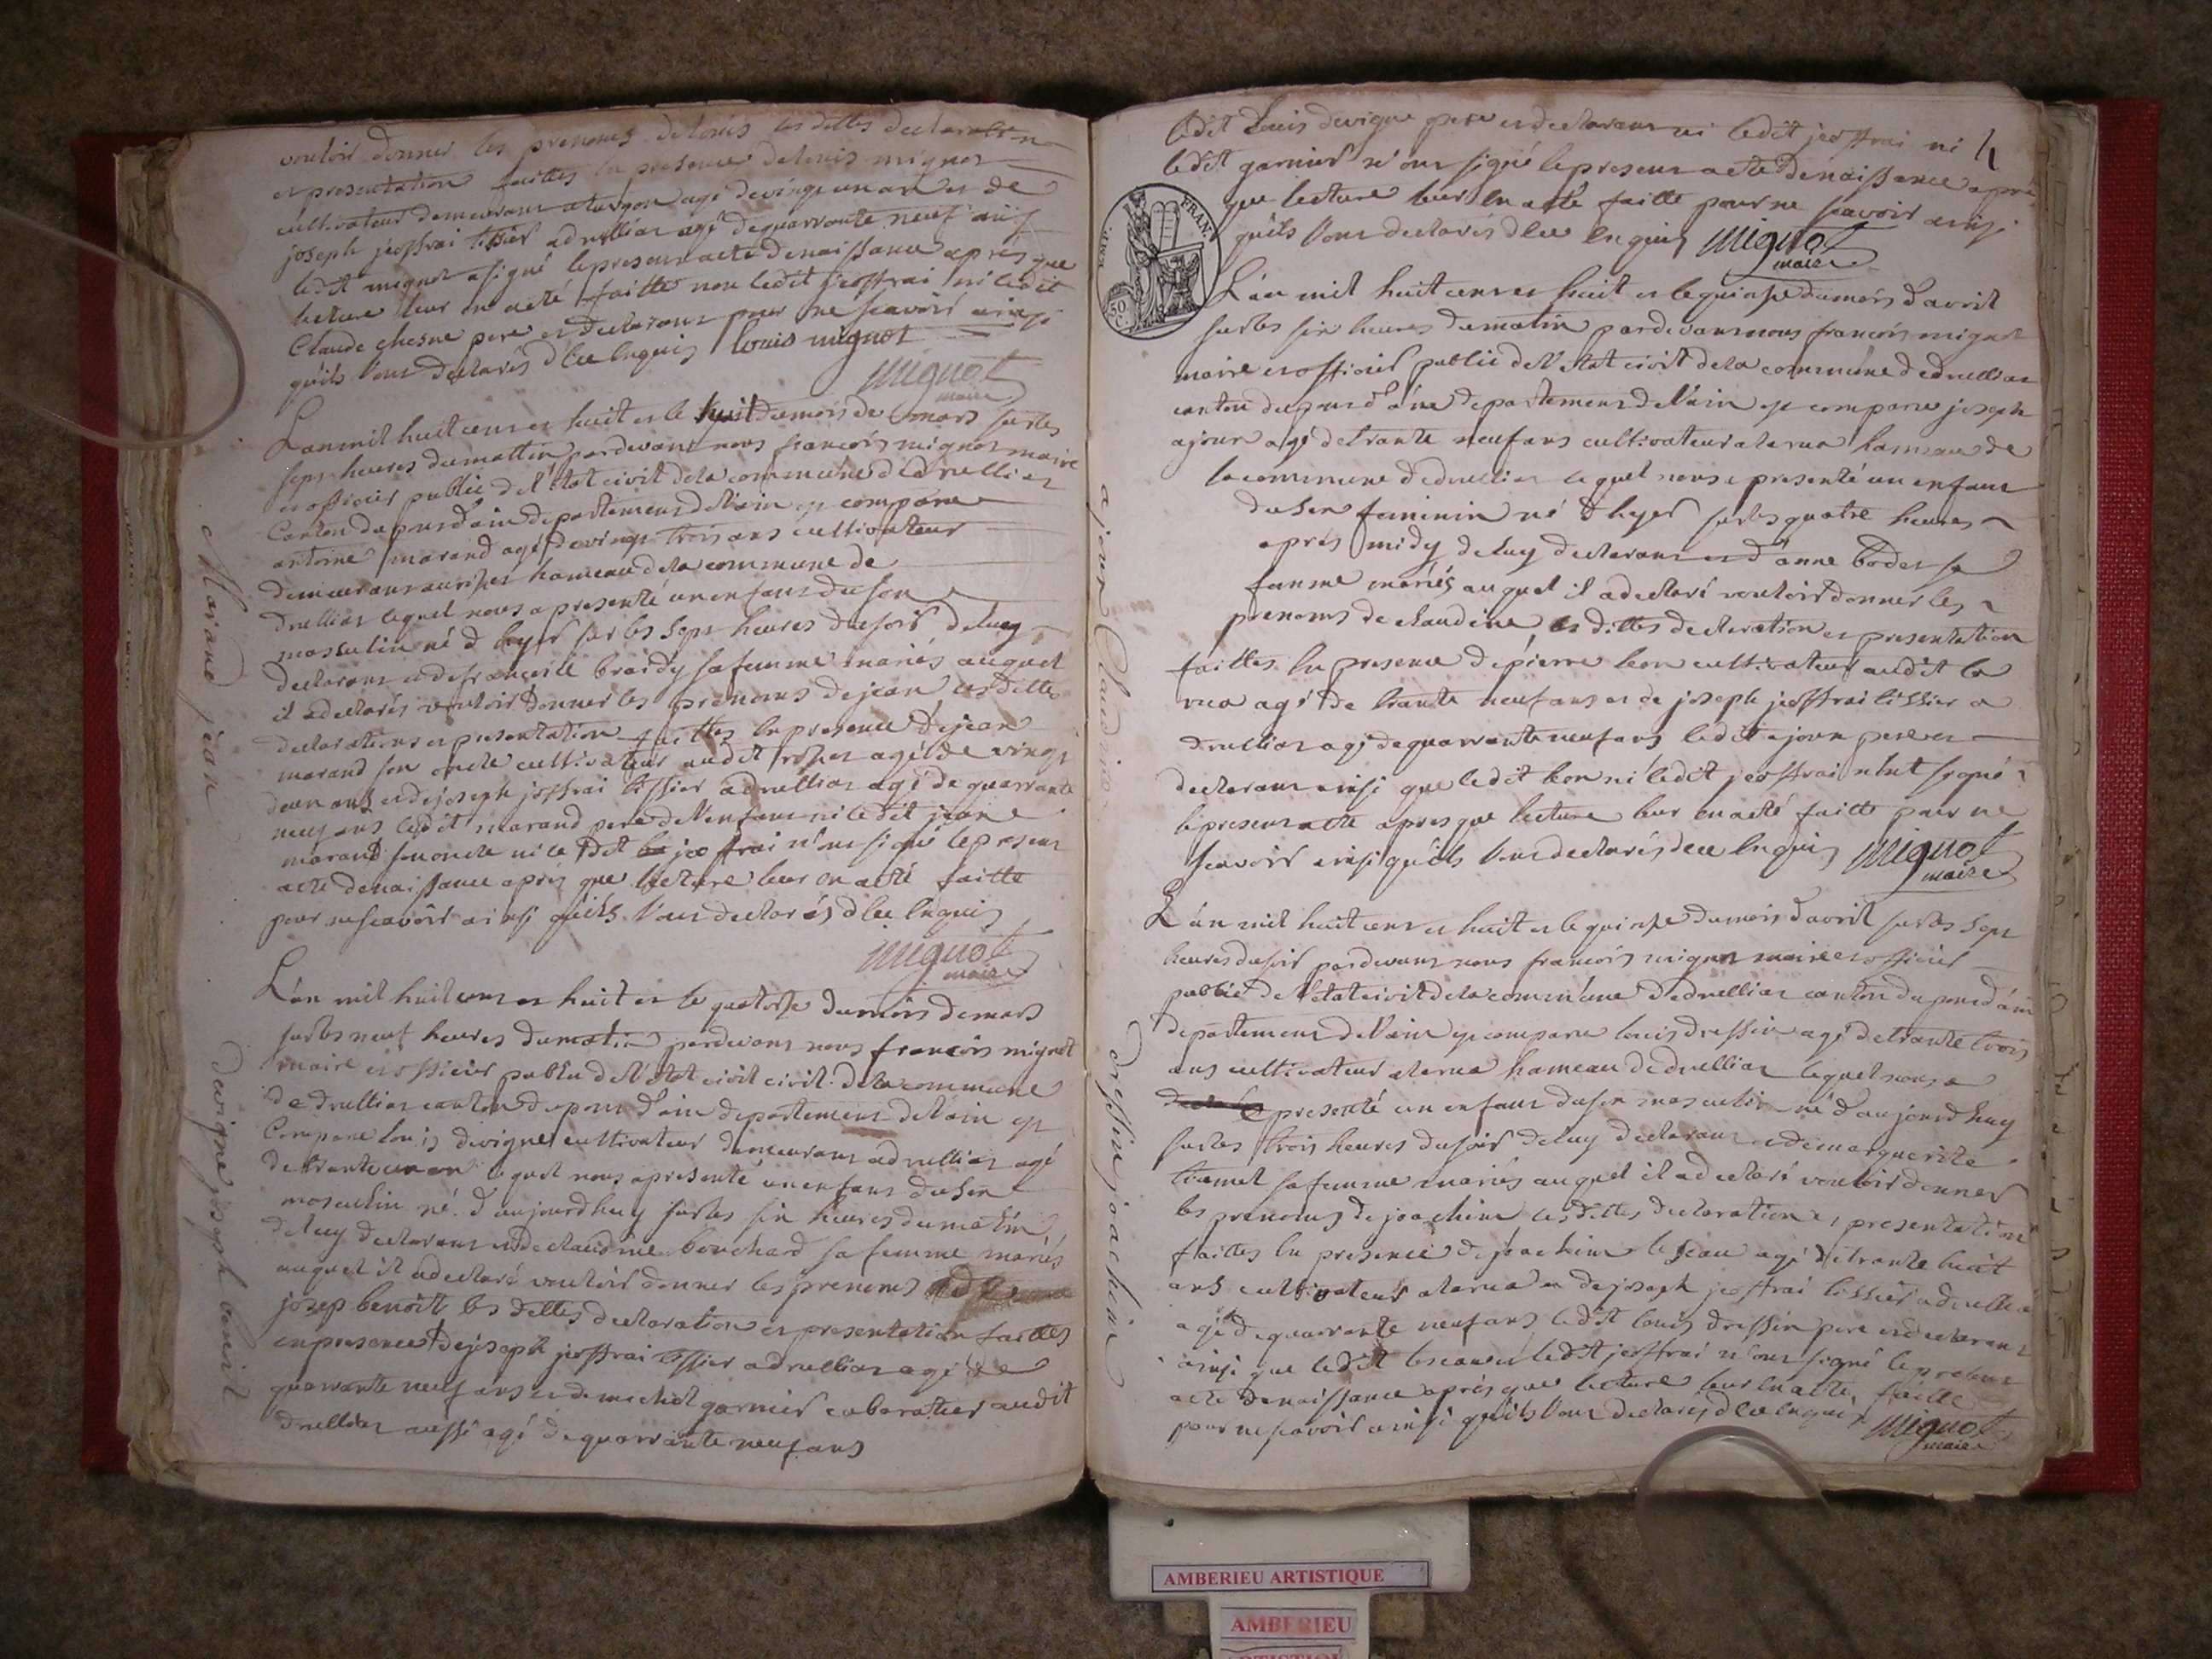 vouloir donner les prenoms de louis les dittes declaration
et presentation faittes en presence de louis mignot
cultivateur demeurant a turgon agé de vingt un an et de
joseph jeoffrai tissier a druillias agé de quarrante neuf ans
ledit mignot a signé le present acte de naissance apres que
lecture leur en a eté faitte non ledit jeoffrai ni ledit
Claude chesne pere et declarant pour ne scavoir ainsi
quils l'ont declarés de ce enquis louis mignot
mignot
maire
L'an mil huit cent et huit et le huit du mois de mars sur les
sept heures du mattin pardevant nous francois mignot maire
et officier public de l'etat civil de la commune de druillias
Canton du pont d'ain departement de l'ain est comparu
antoine marand agé de vingt trois ans cultivateur
demeurant au hameau de la commune de
druillias lequel nous a presenté un enfant du sex
masculin né d hyer sur les sept heures du soir de luy
declarant et de francoise braidy sa femme mariés auquel
il a declarés vouloir donner les prenoms de jean les dittes
declarations et presentation faittes en presence de jean
marand son oncle cultivateur audit agé de vingt
deux ans et de joseph jeoffrai tissier a druillias agé de quarrante
neuf ans ledit marand pere de l'enfant ni ledit jean
marand son oncle ni le dit jeoffrai n'ont signé le present
acte de naissance apres que lecture leur en a eté faitte
pour ne scavoir ainsi quils l'ont declarés de ce enquis
mignot
maire
L'an mil huit cent et huit et le quatorse du mois de mars
sur les neuf heures du matin pardevant nous francois mignot
maire et officier public de l'etat civil civil de la commune
de druillias canton du pont d'ain departement de l'ain est
Comparu louis devigne cultivateur demeurant a druillias agé
de trante un an lequel nous a presenté un enfant du sex
masculin né d'aujourdhuy sur les six heures du matin
de luy declarant et de claudine bouchard sa femme mariés
auquel il a declaré vouloir donner les prenoms de
josep benoit les dittes declaration et presentation faittes
en presence de joseph jeoffrai tissier a druillias agé de
quarrante neuf ans et de michel garnier cabaratier audit
druillias aussi agé de quarrante neuf ans
Marand jean
devigne joseph benoit
4
ledit Louis devigne pere et declarant ni ledit jeoffrai ni
ledit garnier n'ont signé le present acte de naissance apres
que lecture leur en a eté faitte pour ne scavoir ainsi
quils l'ont declarés de ce enquis mignot
maire
EMP. FRAN.
50 C.
L'an mil huit cent et huit et le quinse du mois d'avril
sur les six heures du matin pardevant nous francois mignot
maire et officier public de l'etat civil de la commune de druillias
canton du pont d'ain departement de l'ain est comparu joseph
ajoux agé de trante neuf ans cultivateur a la rua hameau de
la commune de druillias lequel nous a presenté un enfant
du sex feminin né d hyer sur les quatre heures
apres midy de luy declarant et d'anne bodet sa
femme mariés auquel il a declaré vouloir donner les
prenoms de claudine les dittes declaration et presentation
faittes en presence de pierre bon cultivateur audit la
rua agé de trante neuf ans et de joseph jeoffrai tissier a
druillias agé de quarrante neuf ans ledit ajoux pere et
declarant ainsi que ledit bon ni ledit jeoffrai n'ont signé
le present acte apres que lecture leur en a eté faitte pour ne
scavoir ainsi quils l'ont declarés de ce enquis mignot
maire
L'an mil huit cent et huit et le quinse du mois d'avril sur les sept
heures du soir pardevant nous francois mignot maire et officier
public de l'etat civil de la commune de druillias canton du pont d'ain
departement de l'ain est comparu louis dressin agé de trante trois
ans cultivateur a la rua hameau de druillias lequel nous a
presenté un enfant du sex masculin né d'aujourdhuy
sur les trois heures du soir de luy declarant et de marguerite
sa femme mariés auquel il a declaré vouloir donner
les prenoms de joachim les dittes declaration et presentation
faittes en presence de joachim agé de trante huit
ans cultivateur a la rua et de joseph jeoffrai tissier a druillias
agé de quarrante neuf ans ledit louis dressin pere et declarant
ainsi que ledit ni ledit jeoffrai n'ont signé le present
acte de naissance apres que lecture leur en a eté faitte
pour ne scavoir ainsi quils l'ont declarés de ce enquis mignot
maire
ajoux Claudine
dressin joachim
AMBERIEU ARTISTIQUE
AMBERIEU
ARTISTIQUE